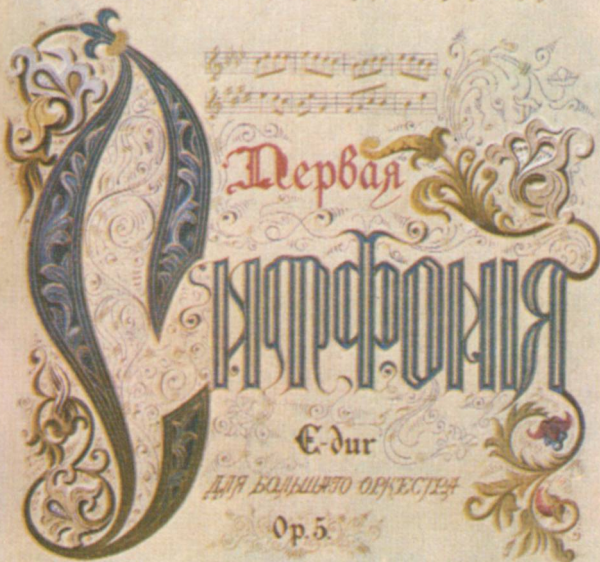 Первая
Симфонія
E-dur
для большаго оркестра
Op. 5.